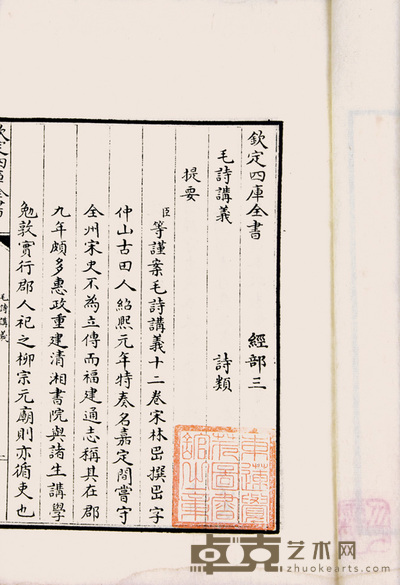 欽定四庫全書 經部三
毛詩講義 詩類
提要
臣等謹案毛詩講義十二卷宋林岊撰岊字
仲山古田人紹熙元年特奏名嘉定間嘗守
全州宋史不為立傳而福建通志稱其在郡
九年頗多惠政重建清湘書院與諸生講學
勉敦實行郡人祀之柳宗元廟則亦循吏也
毛詩講義
欽定四庫全書
卓克艺术网
www.zhuokearts.com